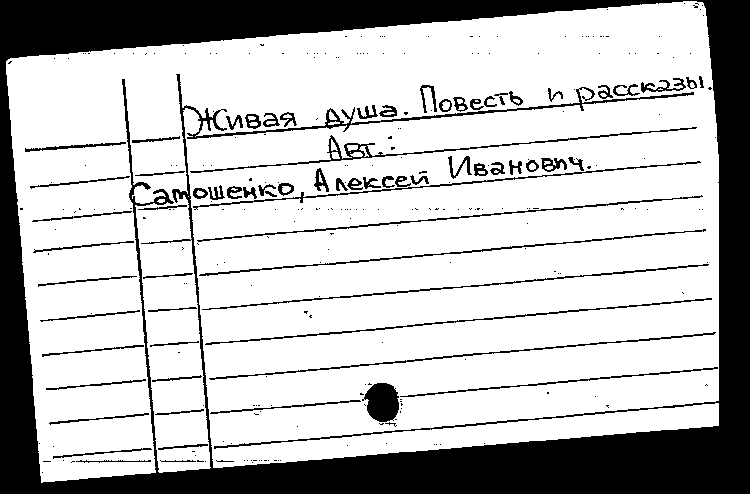 Живая душа. Повесть и рассказы.
Авт.:
Самошенко, Алексей Иванович.